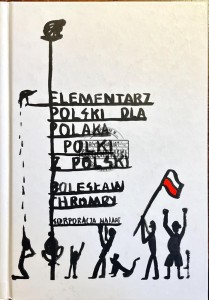 ELEMENTARZ
POLSKI DLA
POLAKA
I POLKI
Z POLSKI
BOLESŁAW
CHROMRY
KORPORACJA HA!ART